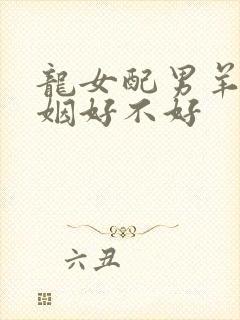 龍女配男羊
姻好不好
六丑